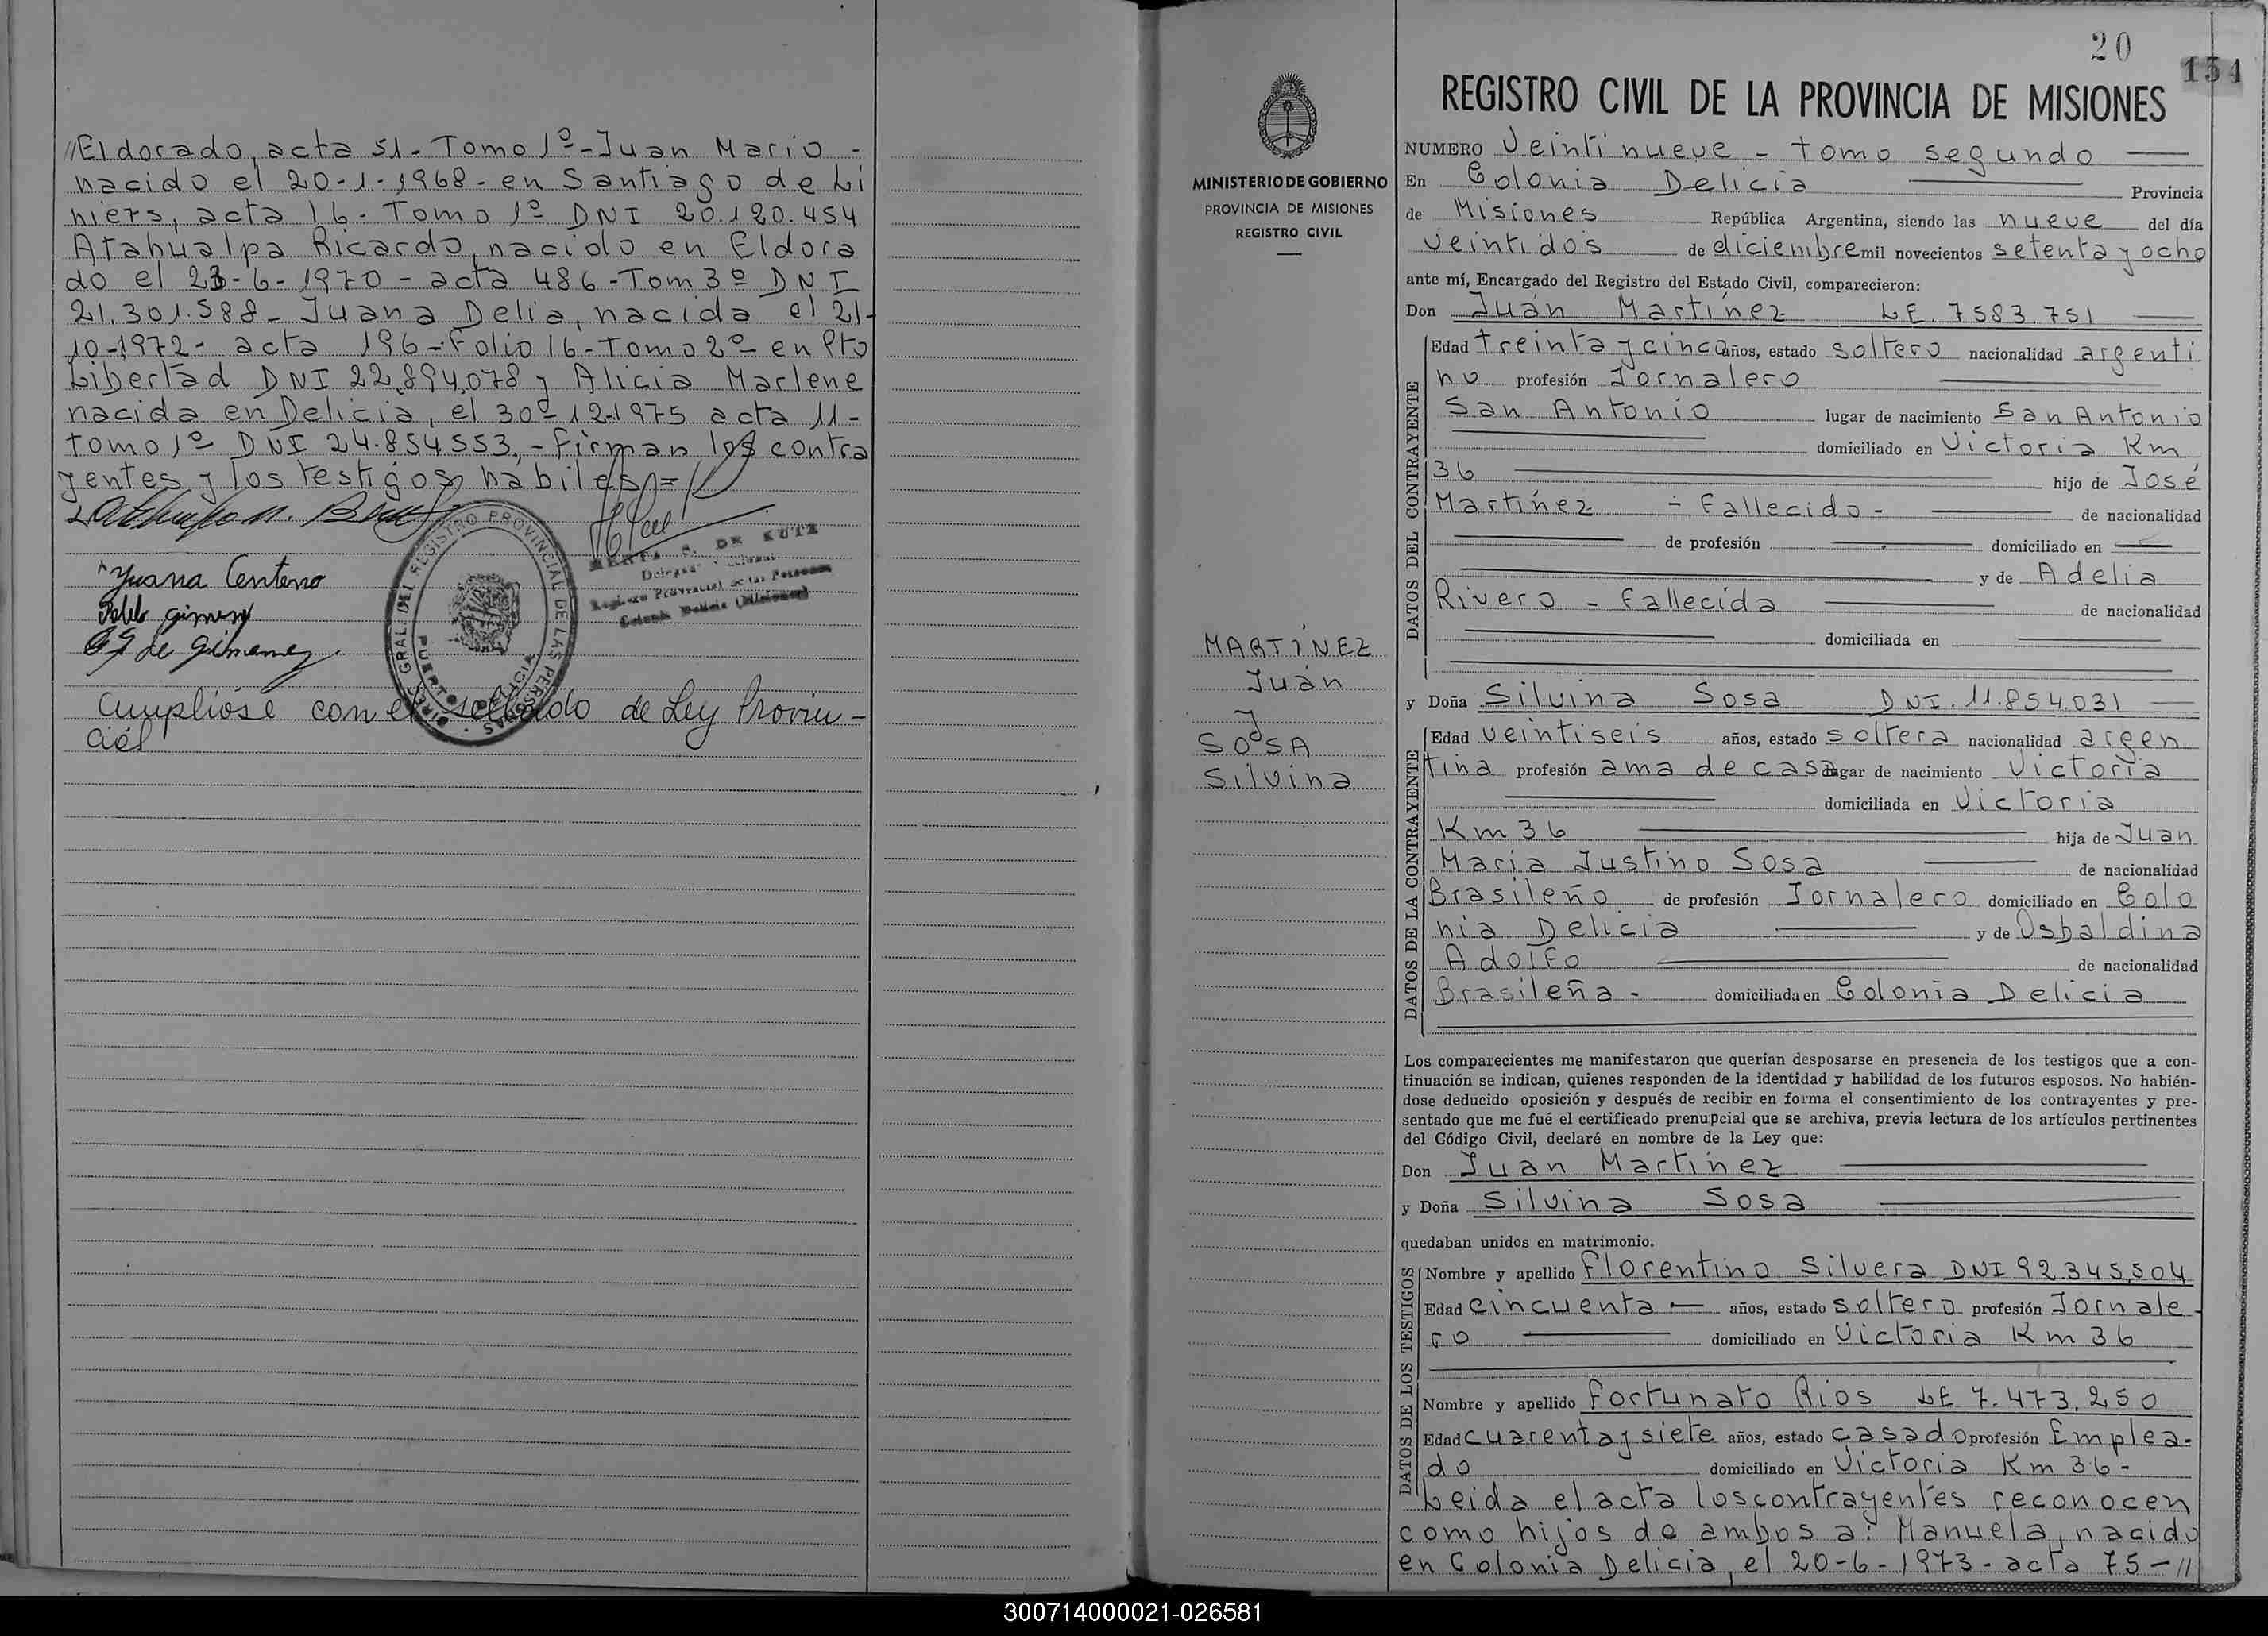 //Eldorado, acta 51- Tomo 1º- Juan Mario -
nacido el 20-1-1968- en Santiago de Li
niers, acta 16- Tomo 1º DNI 20.120.454
Atahualpa Ricardo, nacido en Eldora
do el 23-6-1970 - acta 486 - Tom 3º DNI
21.301.588- Juana Delia, nacida el 21-
10-1972- acta 196- Folio 16- Tomo 2º- en Pto
Libertad DNI 22.894.078 y Alicia Marlene
nacida en Delicia, el 30º-12-1975 acta 11-
tomo 1º DNI 24.854.553.- Firman los contra
yentes y los testigos hábiles=
DE KUTZ
Registro Provincial de las Personas
Colonia Delicia (Misiones)
DIREC. GRAL. DEL REGISTRO PROVINCIAL DE LAS PERSONAS
PUERTO DELICIA
Juana Centeno
Pablo gimenez
de gimenez.
Cumplióse con el sellado de Ley Provin-
cial
20
154
REGISTRO CIVIL DE LA PROVINCIA DE MISIONES
MINISTERIO DE GOBIERNO
PROVINCIA DE MISIONES
REGISTRO CIVIL
MARTÍNEZ
Juan
y
SOSA
Silvina
NUMERO Veintinueve - tomo segundo
En Colonia Delicia Provincia
de Misiones República Argentina, siendo las nueve del día
veintidos de diciembre mil novecientos setenta y ocho
ante mí, Encargado del Registro del Estado Civil, comparecieron:
Don Juan Martínez LE. 7583.751
DATOS DEL CONTRAYENTE
Edad treinta y cinco años, estado soltero nacionalidad argenti
no profesión Jornalero
San Antonio lugar de nacimiento San Antonio
domiciliado en Victoria Km
36 hijo de José
Martínez - Fallecido - de nacionalidad
de profesión domiciliado en
y de Adelia
Rivero - Fallecida de nacionalidad
domiciliada en
y Doña Silvina Sosa DNI. 11.854.031
DATOS DE LA CONTRAYENTE
Edad veintiseis años, estado soltera nacionalidad argen
tina profesión ama de casa lugar de nacimiento Victoria
domiciliada en Victoria
Km 36 hija de Juan
Maria Justino Sosa de nacionalidad
Brasileño de profesión Jornalero domiciliado en Colo
nia Delicia y de Osbaldina
Adolfo de nacionalidad
Brasileña - domiciliada en Colonia Delicia
Los comparecientes me manifestaron que querían desposarse en presencia de los testigos que a con-
tinuación se indican, quienes responden de la identidad y habilidad de los futuros esposos. No habién-
dose deducido oposición y después de recibir en forma el consentimiento de los contrayentes y pre-
sentado que me fué el certificado prenupcial que se archiva, previa lectura de los artículos pertinentes
del Código Civil, declaré en nombre de la Ley que:
Don Juan Martínez
y Doña Silvina Sosa
quedaban unidos en matrimonio.
DATOS DE LOS TESTIGOS
Nombre y apellido Florentino Silvera DNI 92.345.504
Edad cincuenta años, estado soltero profesión Jornale-
ro domiciliado en Victoria Km 36
Nombre y apellido Fortunato Rios LE 7.473.250
Edad cuarenta y siete años, estado casado profesión Emplea-
do domiciliado en Victoria Km 36-
Leida el acta los contrayentes reconocen
como hijos de ambos a: Manuela, nacido
en Colonia Delicia, el 20-6-1973- acta 75-//
300714000021-026581